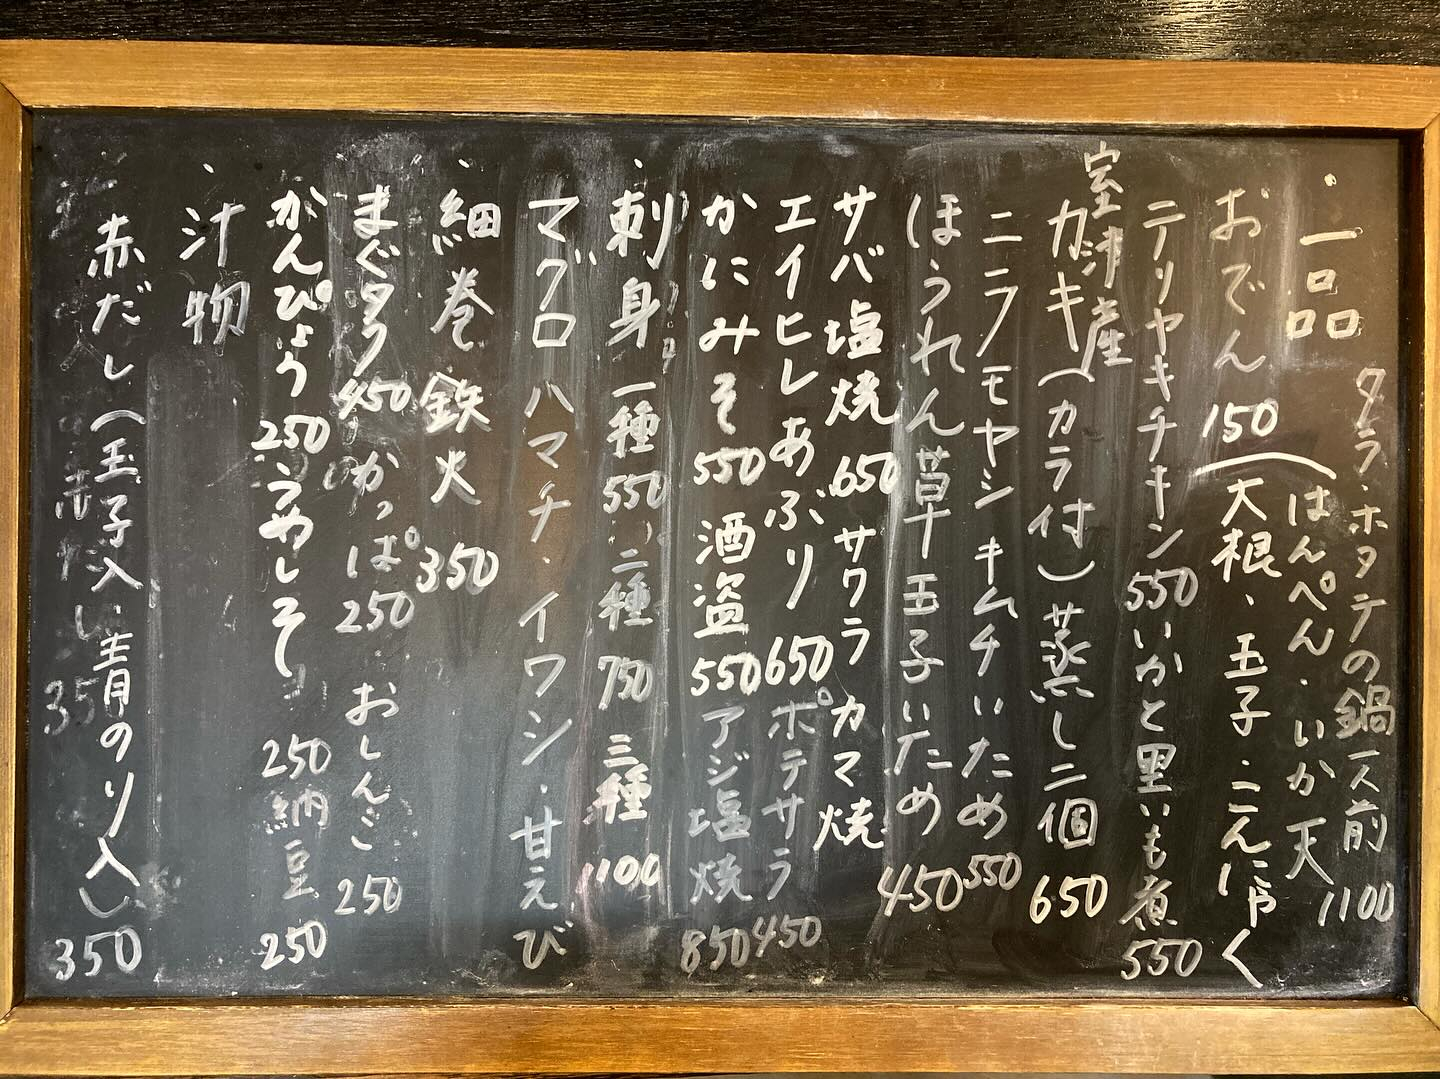 ・一品
タラ・ホタテの鍋一人前1100
おでん150(はんぺん・いか天
大根、玉子・こんにゃく
テリヤキチキン550いかと里いも煮550
室津産
カキ(カラ付)蒸し二個650
ニラモヤシキムチいため550
ほうれん草玉子いため450
サバ塩焼650サワラカマ焼
エイヒレあぶり650ポテサラ450
かにみそ550酒盗550アジ塩焼850
・刺身一種550二種750三種1100
マグロハマチ・イワシ・甘えび
・細巻鉄火350
まぐタク450かっぱ250おしんこ250
かんぴょう250うめしそ250納豆250
・汁物
赤だし(玉子入・青のり入)350